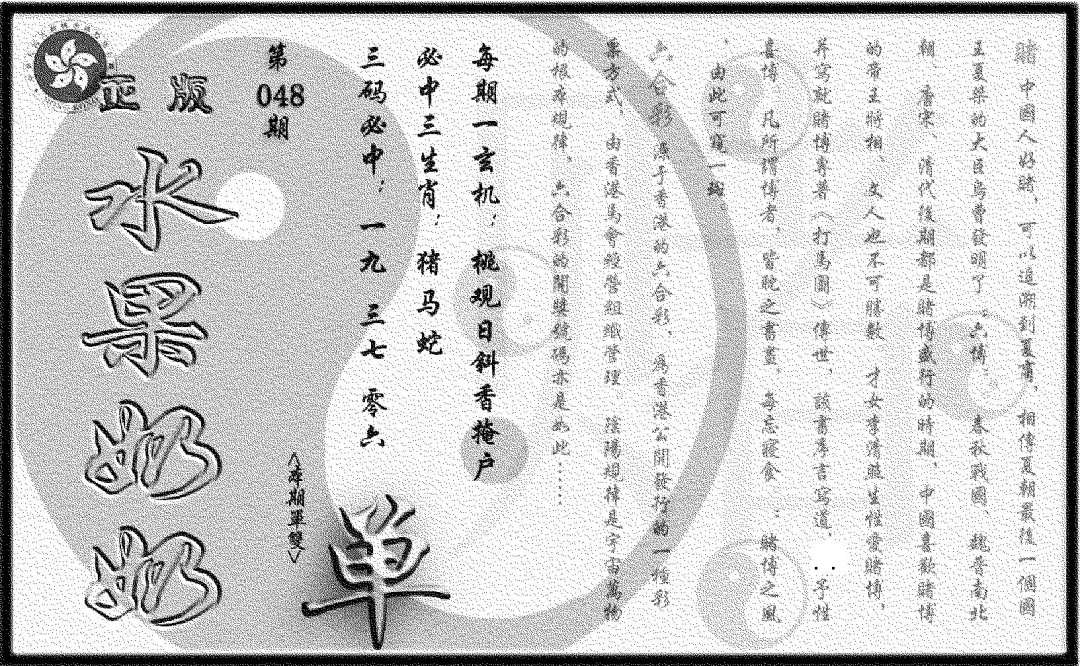 賭 中國人好賭，可以追溯到夏商，相傳夏朝最後一個國
王夏桀的大臣烏曹發明了：六博； 春秋戰國 魏晉南北
朝、唐宋、清代後期都是賭博盛行的時期，中國喜歡賭博
的帝王將相 文人也不可勝數 才女李清照生性愛賭博，
并寫就賭博專著〈打馬圖〉傳世，該書序言寫道，：予性
喜博 凡所謂博者，皆耽之晝晝，每忘寢食 ：賭博之風
，由此可窺一斑。
六合彩 源于香港的六合彩，為香港公開發行的一種彩
票方式，由香港馬會經營組織管理 陰陽規律是宇宙萬物
的根本規律，六合彩的開獎號碼亦是如此……
每期一玄机：桃观日斜香掩户
必中三生肖：猪马蛇
三码必中：一九 三七 零六
第
048
期
〈本期單雙〉
单
正版
水果奶奶